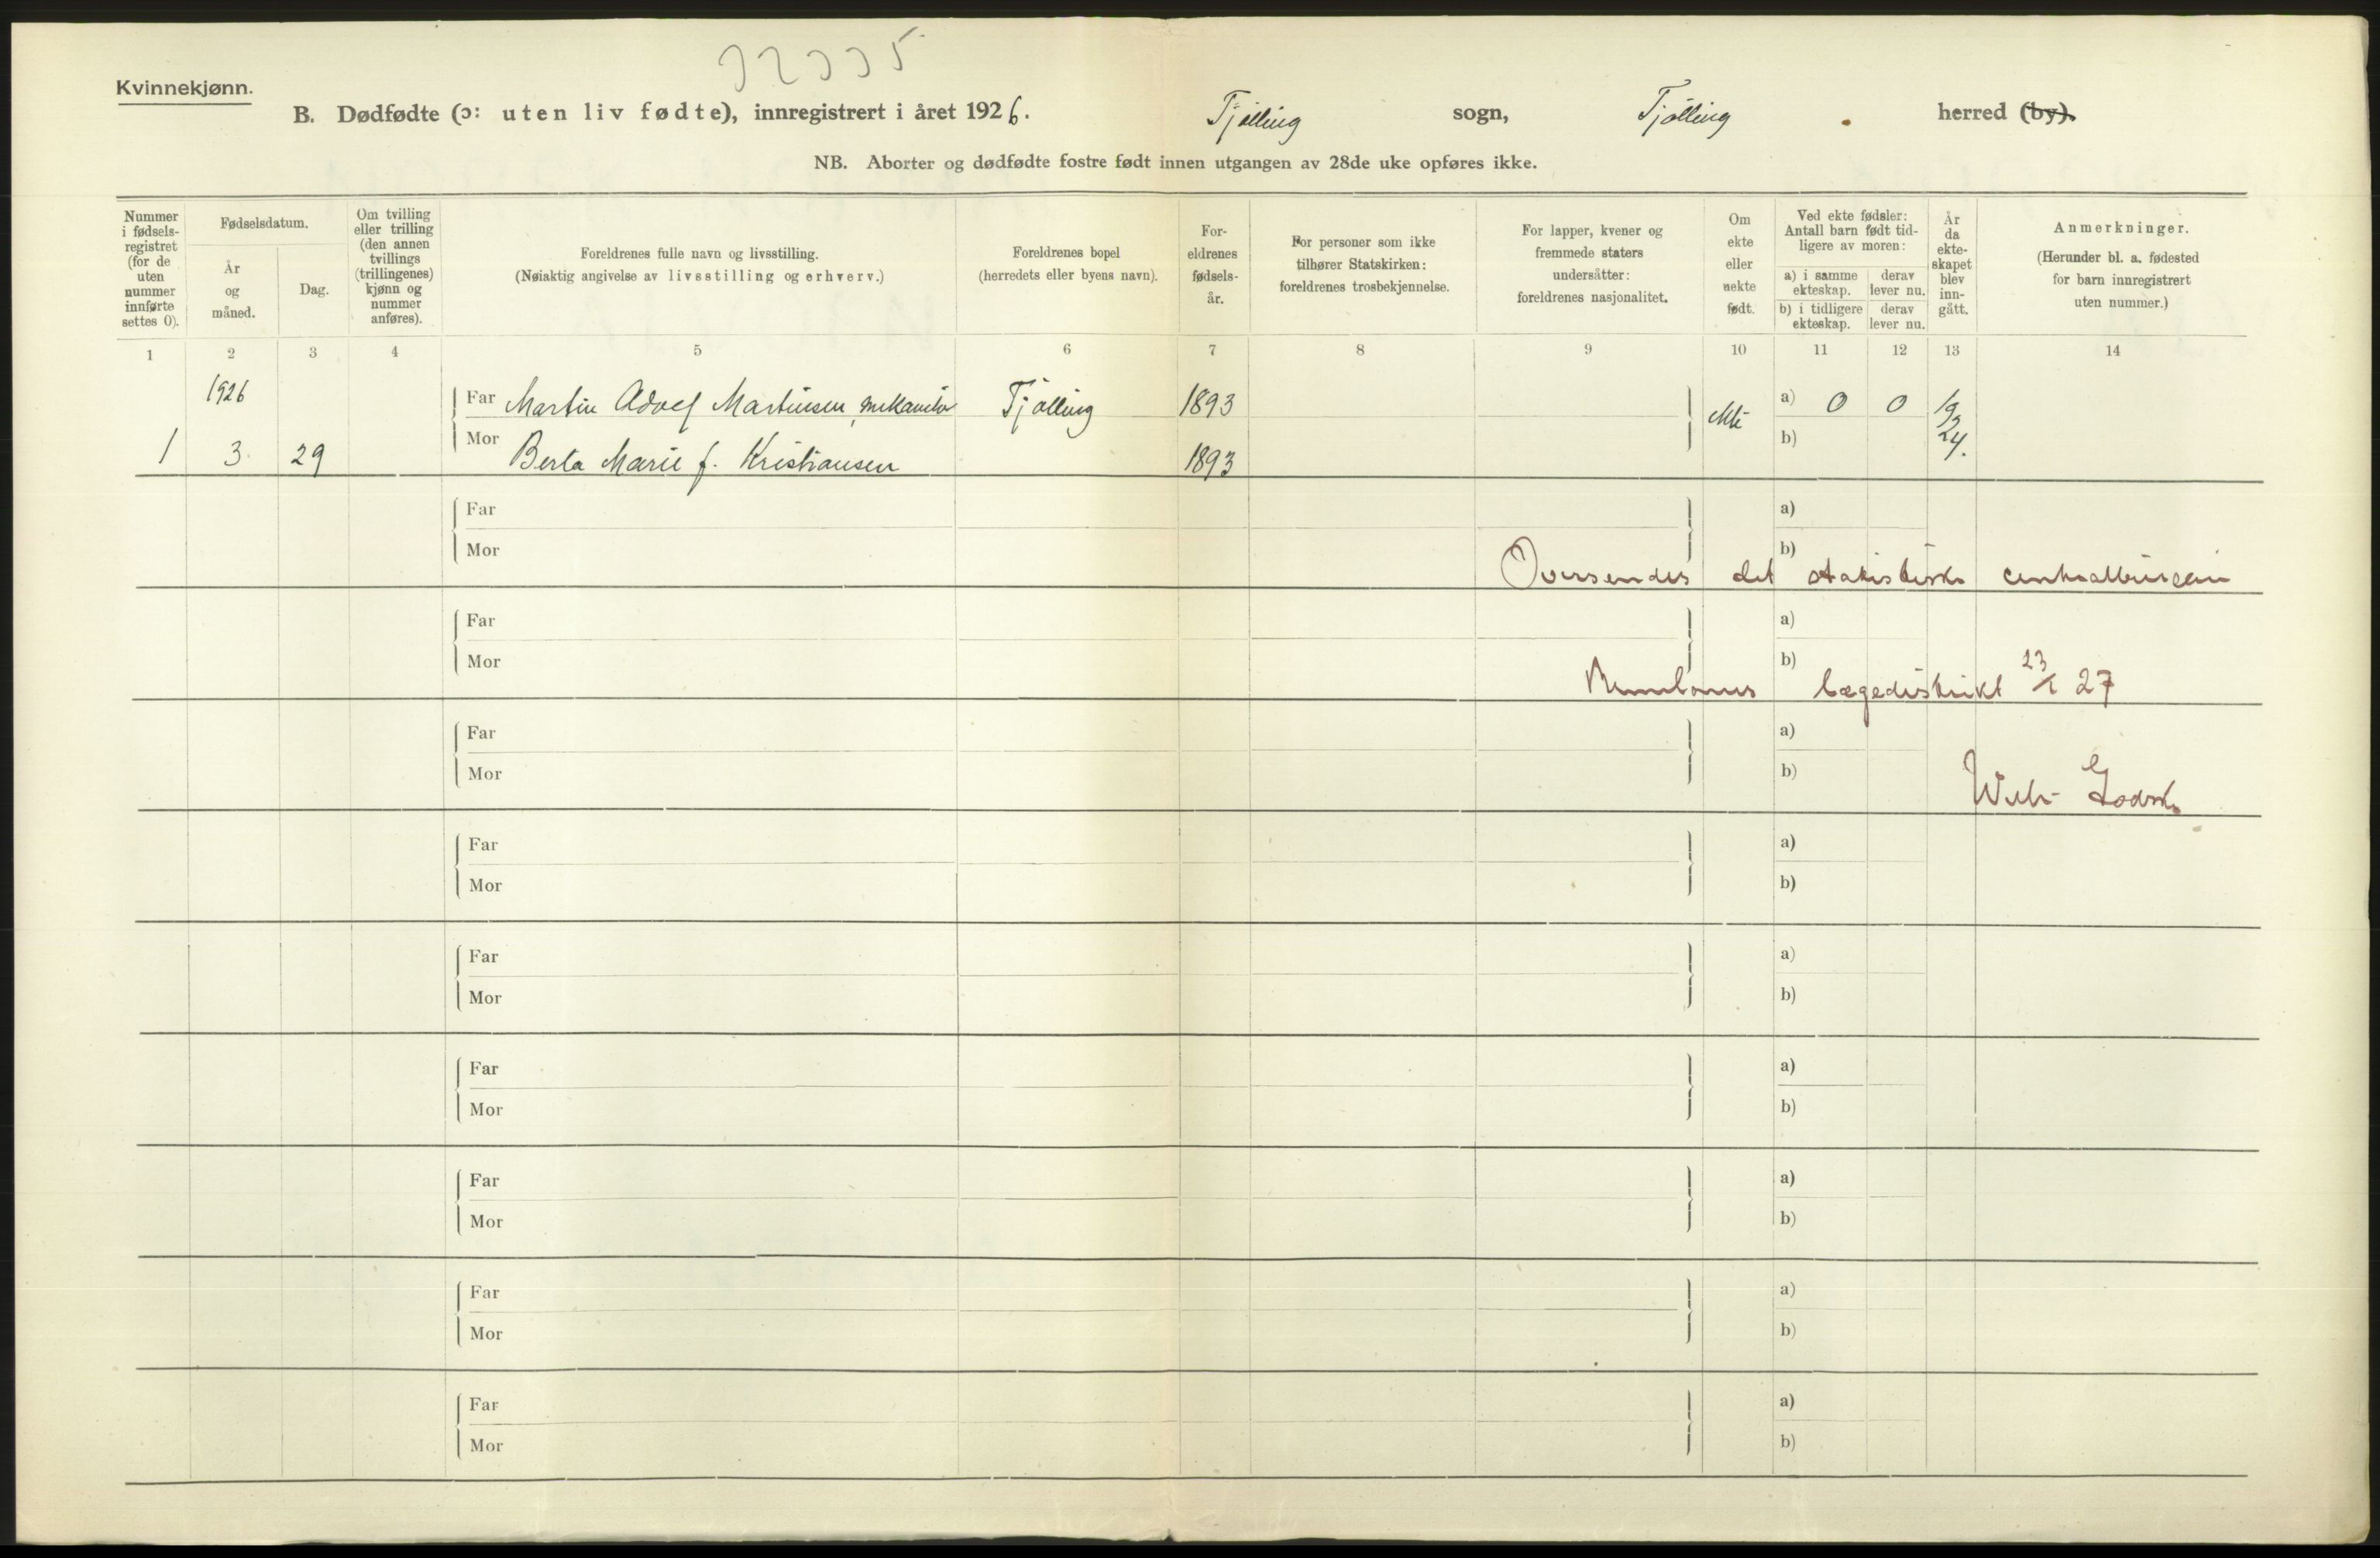 32335
Kvinnekjønn.
B. Dødfødte (ɔ: uten liv fødte), innregistrert i året 1926. Tjølling sogn, Tjølling herred (by).
NB. Aborter og dødfødte fostre født innen utgangen av 28de uke opføres ikke.
Nummer i fødsels-registret (for de uten nummer innførte settes 0).
Fødselsdatum.
År og måned.
Dag.
Om tvilling eller trilling (den annen tvillings (trillingenes) kjønn og nummer anføres).
Foreldrenes fulle navn og livsstilling.
(Nøiaktig angivelse av livsstilling og erhverv.)
Foreldrenes bopel
(herredets eller byens navn).
For-eldrenes fødsels-år.
For personer som ikke tilhører Statskirken: foreldrenes trosbekjennelse.
For lapper, kvener og fremmede staters undersåtter: foreldrenes nasjonalitet.
Om ekte eller uekte født.
Ved ekte fødsler: Antall barn født tid-ligere av moren:
a) i samme ekteskap. derav lever nu.
b) i tidligere ekteskap. derav lever nu.
År da ekte-skapet blev inn-gått.
Anmerkninger.
(Herunder bl. a. fødested for barn innregistrert uten nummer.)
1 2 3 4 5 6 7 8 9 10 11 12 13 14
1926 Far Martin Adolf Martinsen, mekaniker Tjølling 1893 ekte a) 0 0 19
1 3. 29 Mor Berta Marie f. Kristiansen 1893 b) 24.
Far a)
Mor b)
Oversendes det statistiske centralbureau
Far a)
Mor b)
lægedistrikt 23/2 27
Far a)
Mor b)
Wilh
Far a)
Mor b)
Far a)
Mor b)
Far a)
Mor b)
Far a)
Mor b)
Far a)
Mor b)
Far a)
Mor b)